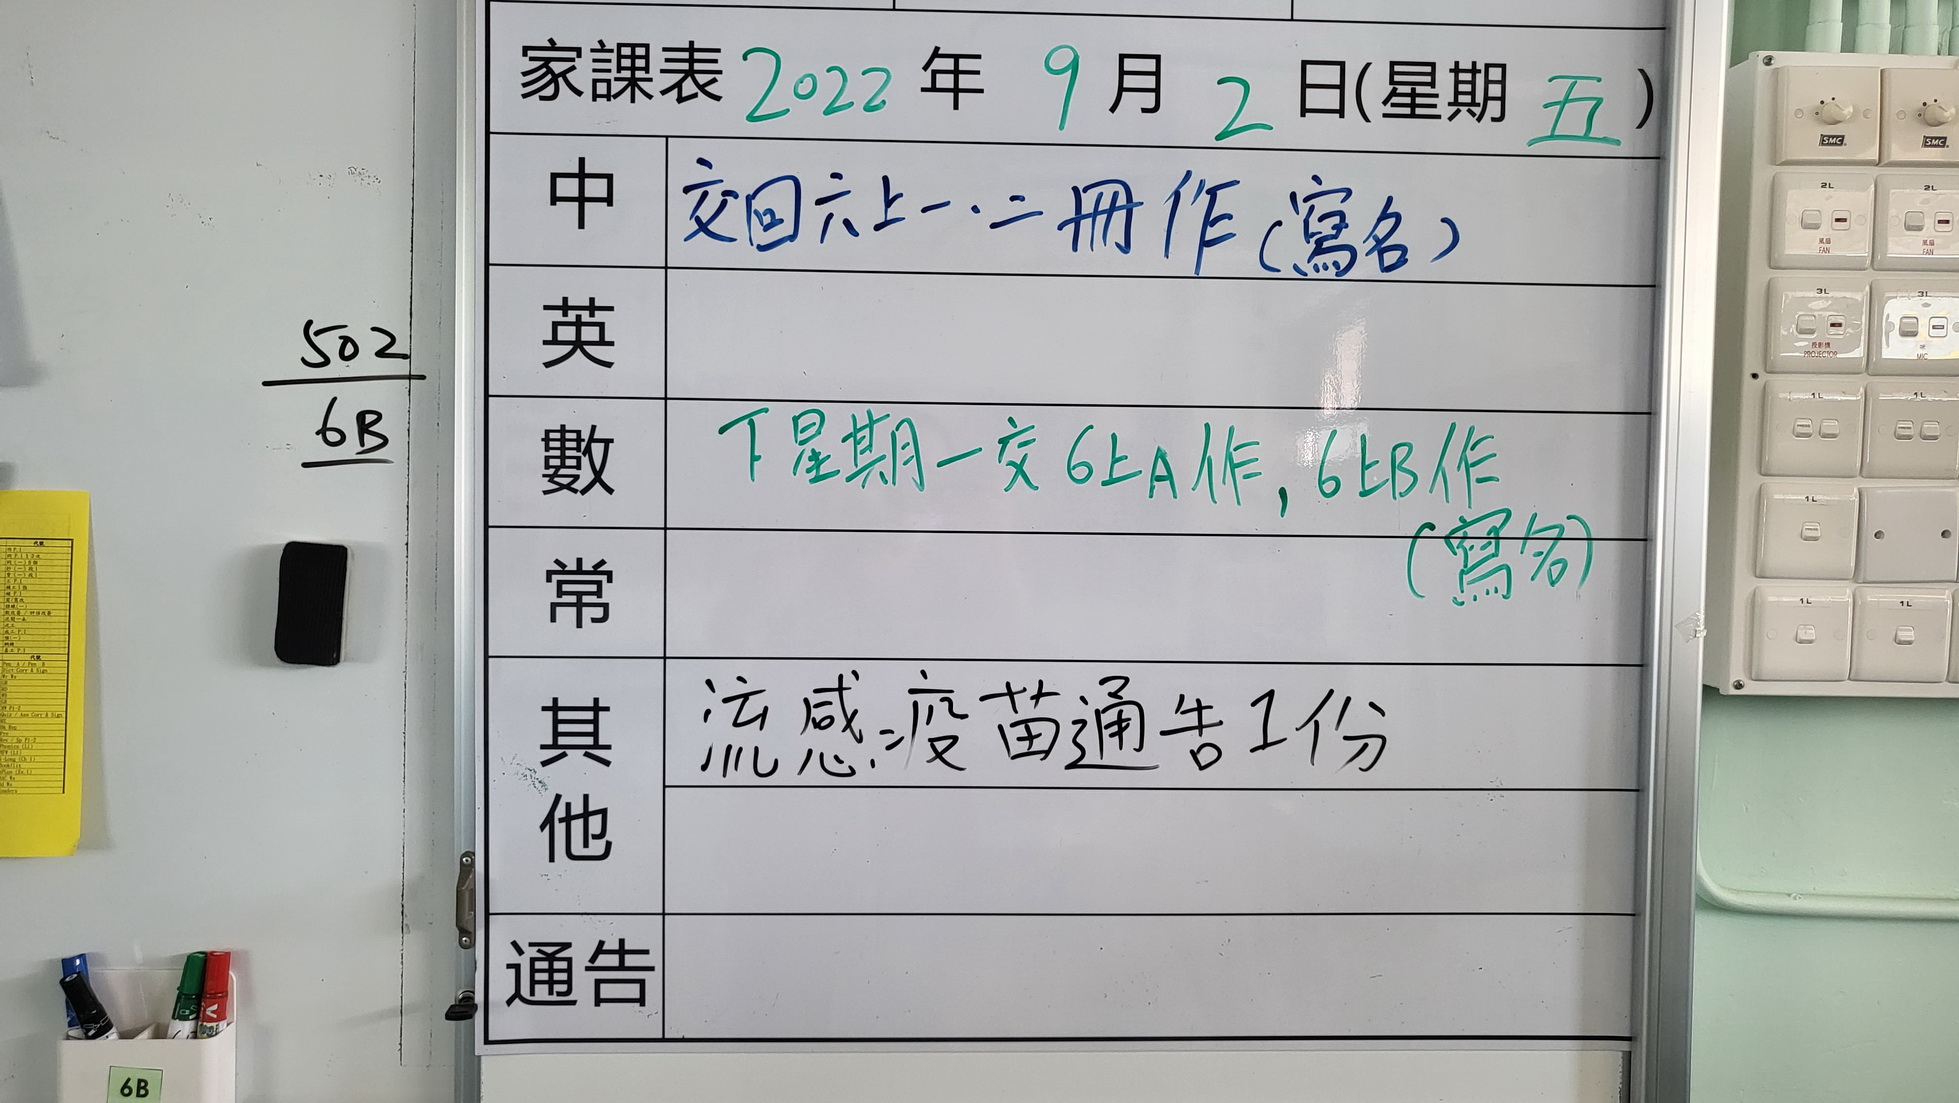 家課表 2022 年 9 月 2 日(星期 五 )
中 交回六上一.二冊作(寫名)
英
數 下星期一交6上A作,6上B作
(寫名)
常
其他 流感疫苗通告1份
通告
502
6B
6B
SMC
SMC
2L
2L
風扇
FAN
風扇
FAN
3L
3L
投影機
PROJECTOR
咪
MIC
1L
1L
1L
1L
1L